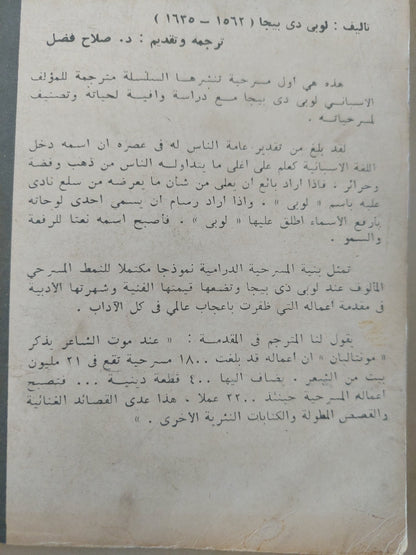 تأليف : لوبى دى بيجا ( ١٥٦٢ - ١٦٣٥ )
ترجمة وتقديم : د. صلاح فضل
هذه هي أول مسرحية تنشرها السلسلة مترجمة للمؤلف
الاسباني لوبى دى بيجا مع دراسة وافية لحياته وتصنيف
لمسرحياته .
لقد بلغ من تقدير عامة الناس له فى عصره ان اسمه دخل
اللغة الاسبانية كعلم على اغلى ما يتداوله الناس من ذهب وفضة
وحرائر . فاذا اراد بائع ان يعلى من شأن ما يعرضه من سلع نادى
عليه باسم « لوبى » . واذا اراد رسام ان يسمى احدى لوحاته
بأرفع الأسماء اطلق عليها « لوبى » . فأصبح اسمه نعتا للرفعة
والسمو .
تمثل بنية المسرحية الدرامية نموذجا مكتملا للنمط المسرحي
المألوف عند لوبى دى بيجا وتضعها قيمتها الفنية وشهرتها الأدبية
فى مقدمة اعماله التى ظفرت باعجاب عالمي فى كل الآداب .
يقول لنا المترجم فى المقدمة : « عند موت الشاعر يذكر
« مونتالبان » ان اعماله قد بلغت ١٨٠٠ مسرحية تقع فى ٢١ مليون
بيت من الشعر . يضاف اليها ٤٠٠ قطعة دينية ... فتصبح
اعماله المسرحية حينئذ ٢٢٠٠ عملا ، هذا عدى القصائد الغنائية
والقصص المطولة والكتابات النثرية الأخرى . »